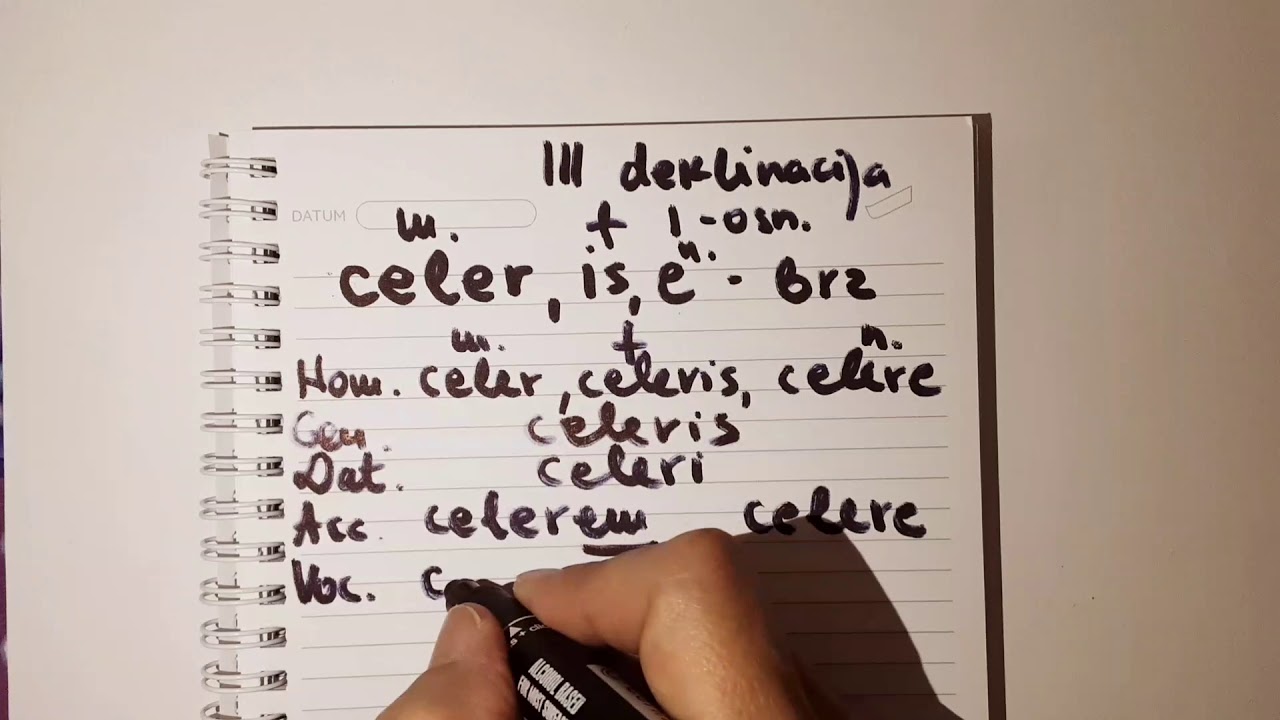 III deklinacija
DATUM
m. f 1-osn.
celer, is, e n. - brz
m. f n.
Nom. celer, celeris, celere
Gen. celeris
Dat. celeri
Acc. celerem celere
Voc. c
ALCOHOL BASED
FOR MOST